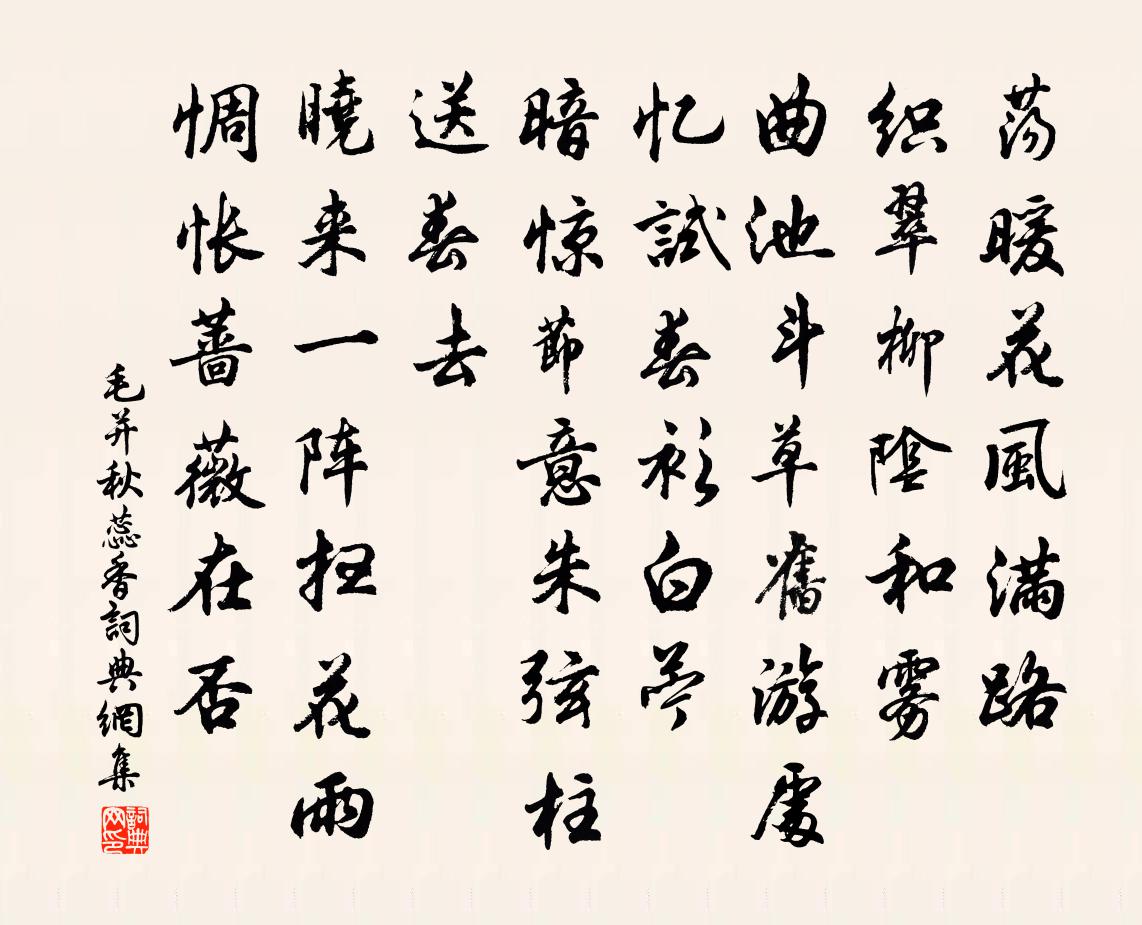 荡暖花風满路
织翠柳陰和雾
曲池斗草舊游處
忆試春衫白苎
暗惊節意朱弦柱
送春去
曉来一阵扫花雨
惆怅蔷薇在否
毛并秋蕊香詞典網集
詞典网印